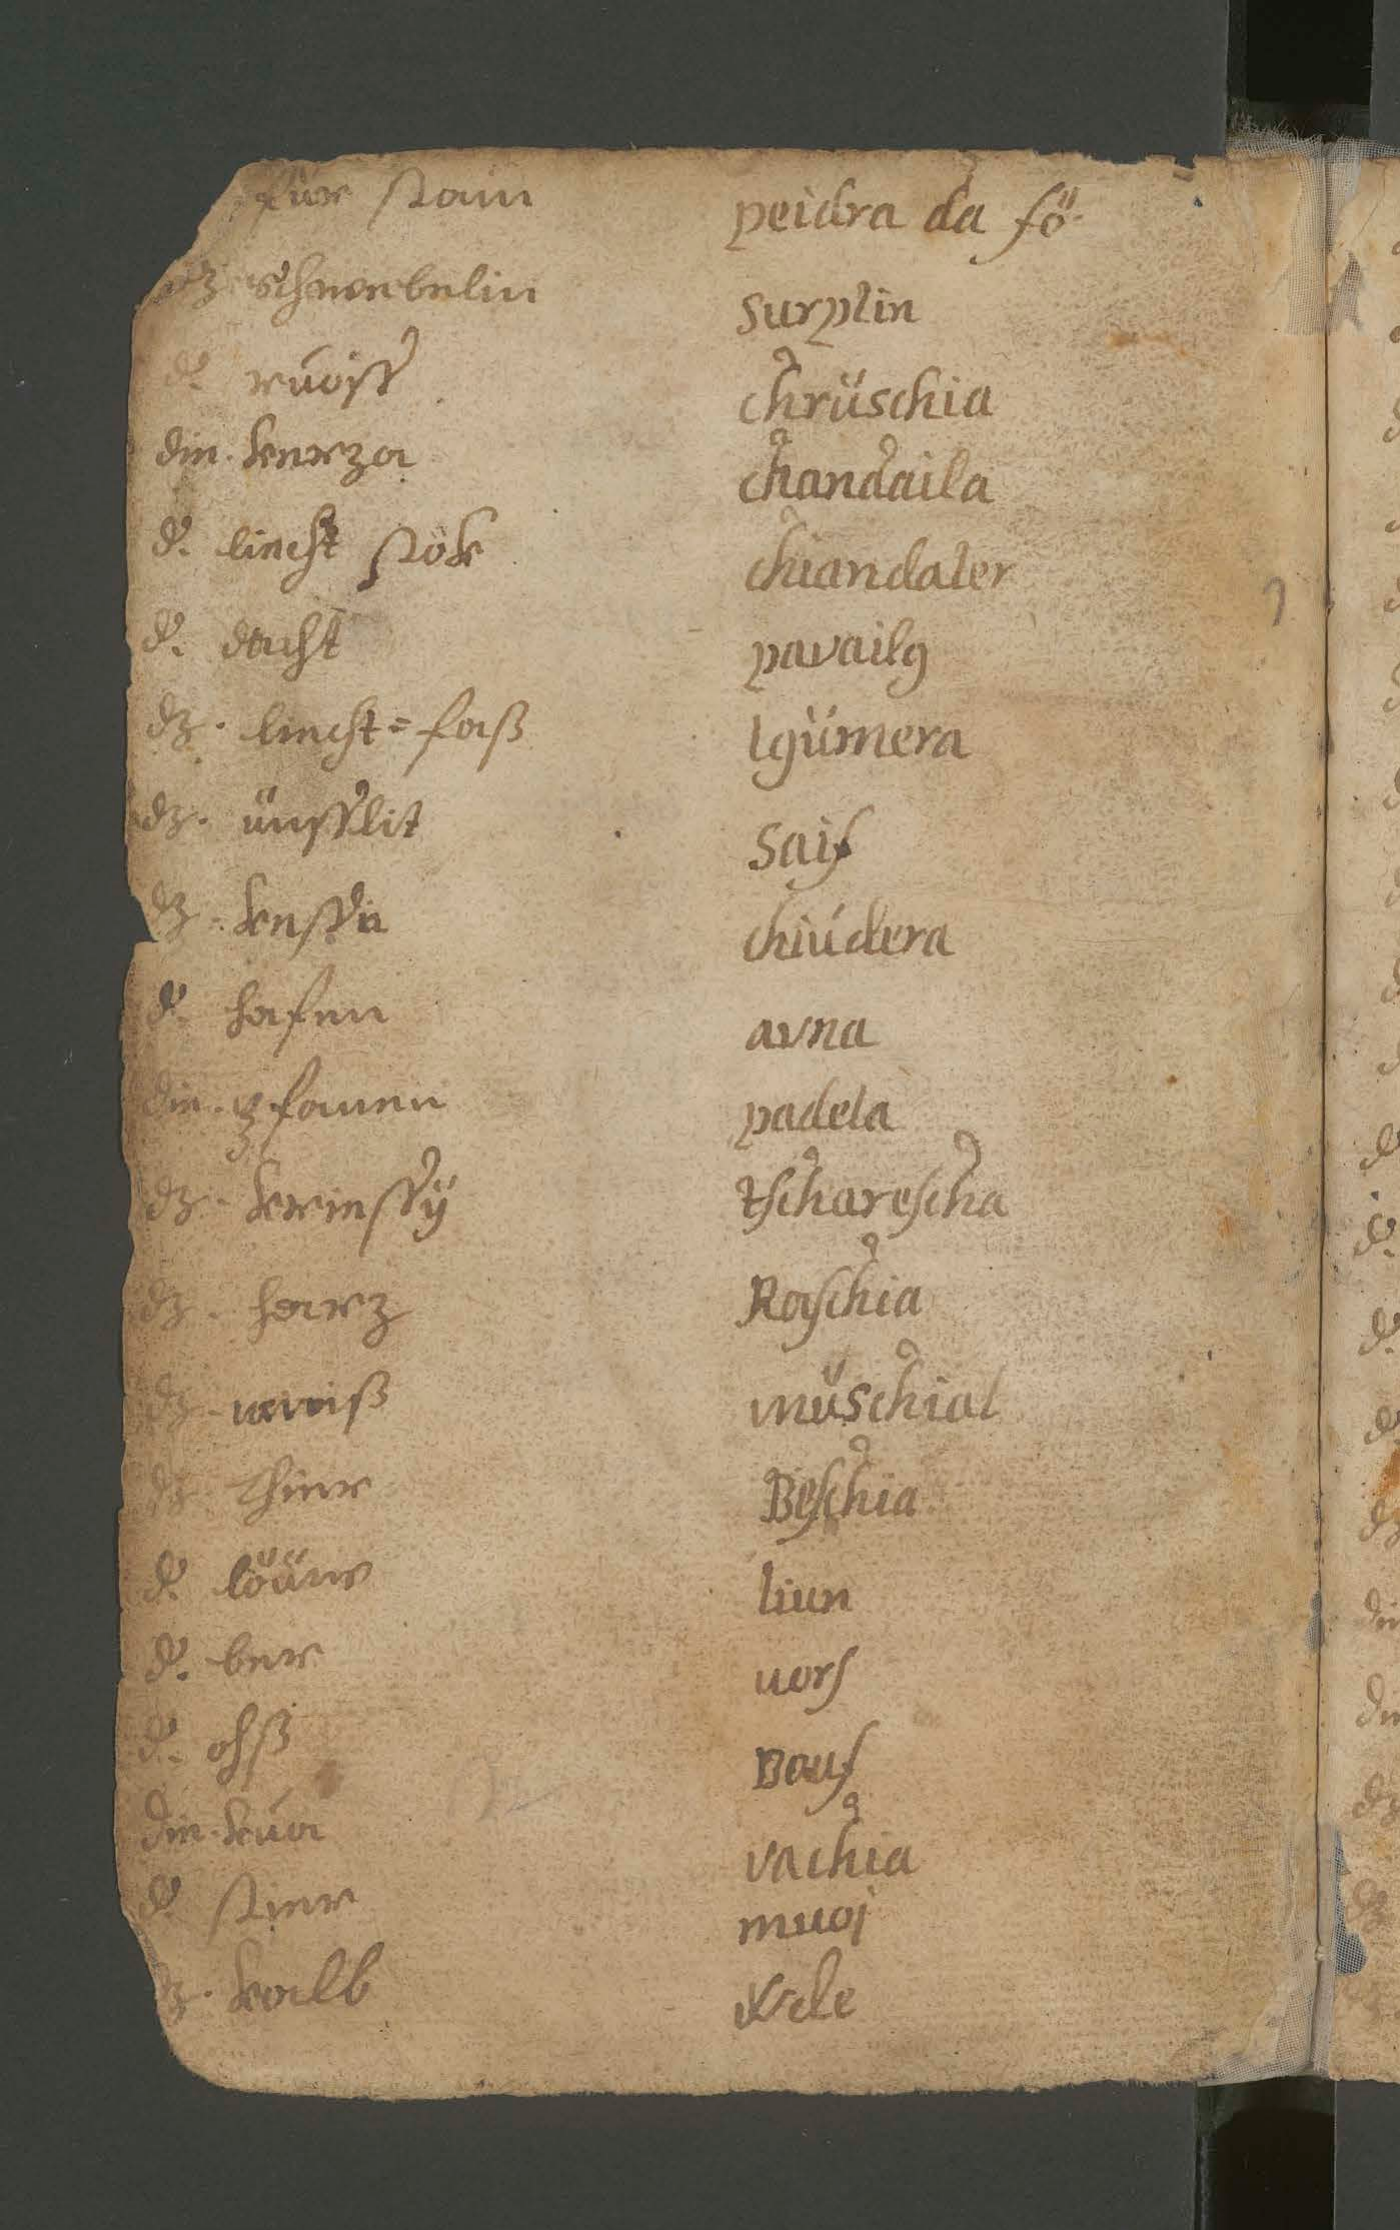 für stain peidra da fö
dz schwebelin surplin
d. ruost chrüschia
die. kerza chandaila
d. liecht stok chiandaler
d. dacht pavailg
dz. liecht=faß lgümera
dz. ünsslit saif
dz. kessi chiúdera
d. hafen avna
die. pfanen padela
dz. kriessÿ tscharescha
dz. harz Raschia
dz. müschial
dz. thier Beschia
d. löüw liun
d. ber uors
d. ohß Bouf
die. kua vachia
d. stier muoj
dz. kalb vdle